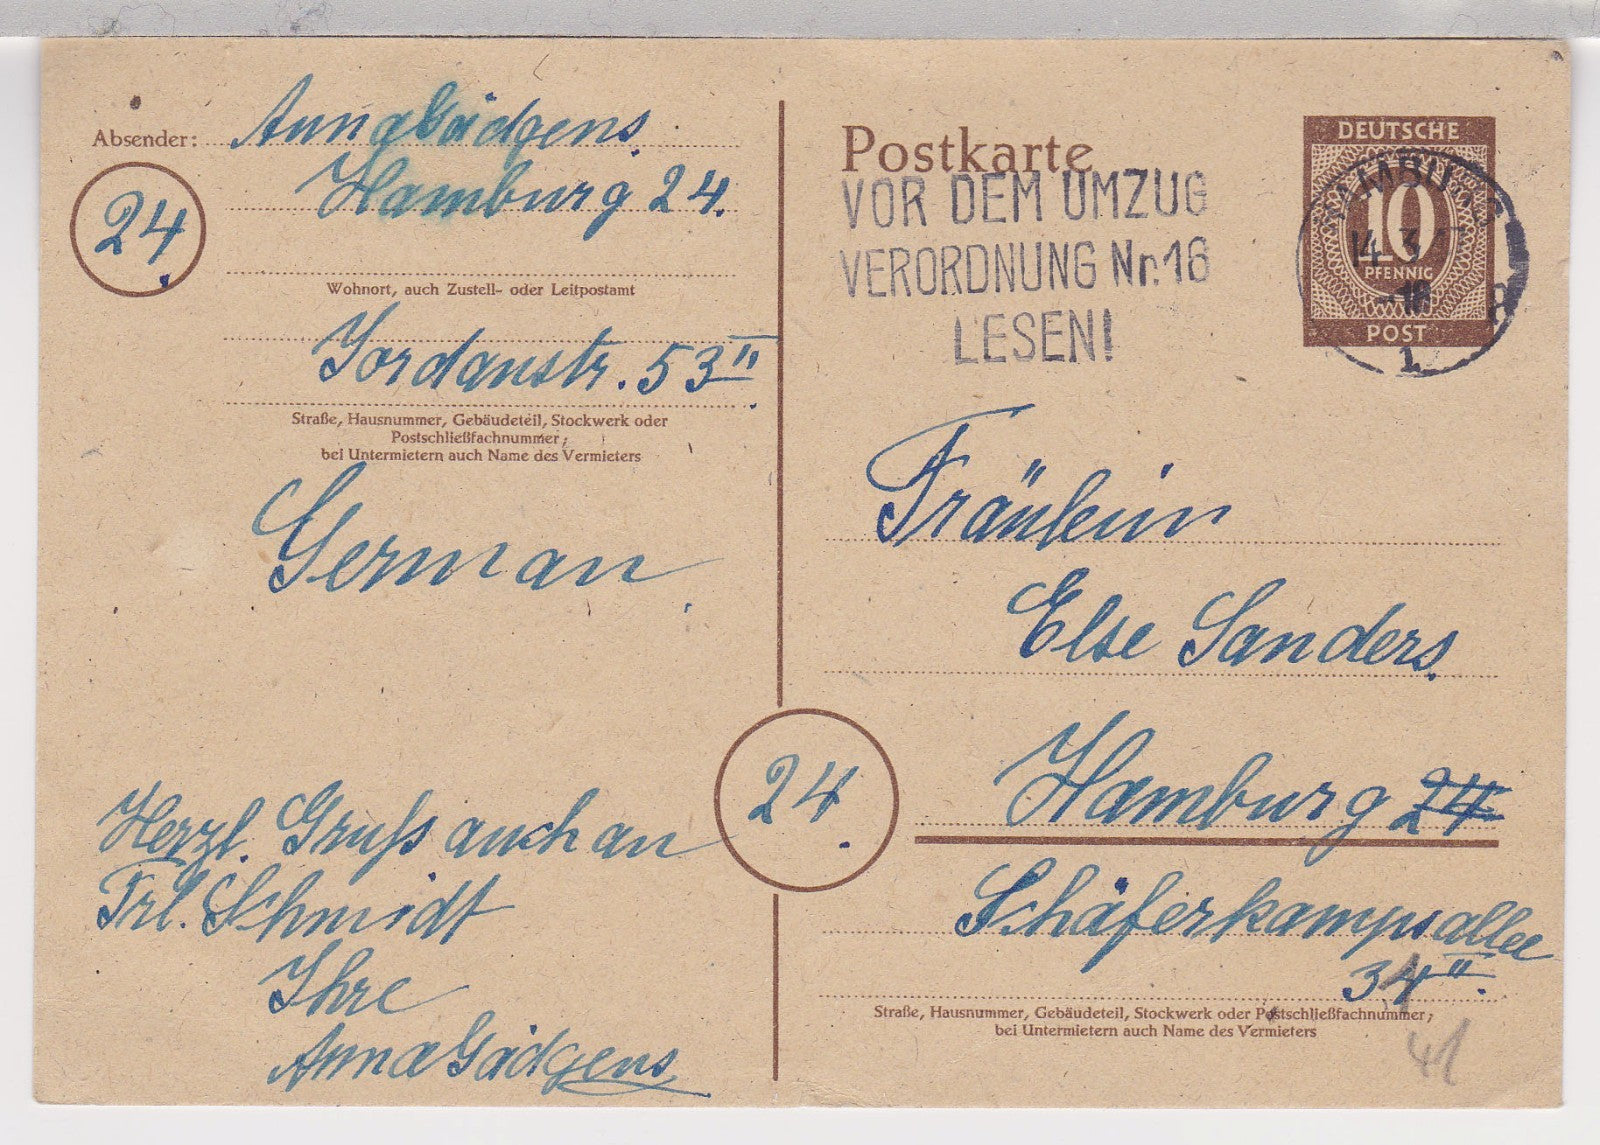 Absender: Anna Gädgens
Hamburg 24.
24.
Wohnort, auch Zustell- oder Leitpostamt
Jordanstr. 53 II
Straße, Hausnummer, Gebäudeteil, Stockwerk oder
Postschließfachnummer;
bei Untermietern auch Name des Vermieters
German
Herzl. Gruß auch an
Frl. Schmidt
Ihre
Anna Gädgens
Postkarte
VOR DEM UMZUG
VERORDNUNG Nr. 16
LESEN!
DEUTSCHE
10
PFENNIG
POST
HAMBURG
14. 3
-18
1
Fräulein
Else Sanders
Hamburg 24
24.
Schäferkampsallee
34 II.
Straße, Hausnummer, Gebäudeteil, Stockwerk oder Postschließfachnummer;
bei Untermietern auch Name des Vermieters
41